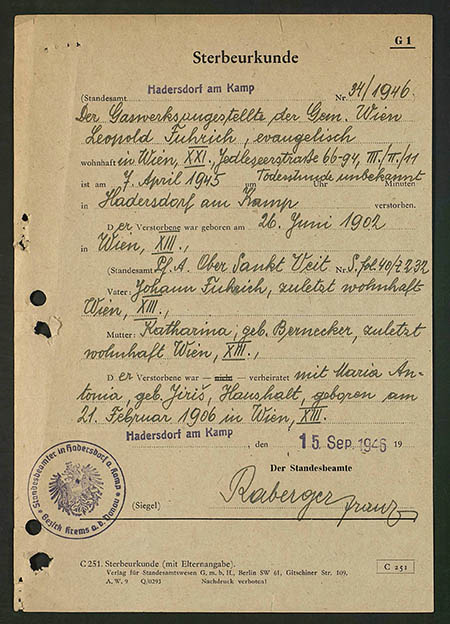 G 1
Sterbeurkunde
(Standesamt Hadersdorf am Kamp Nr. 34/1946.
Der Gaswerksangestellte der Gem. Wien
Leopold Fuhrich, evangelisch
wohnhaft in Wien, XXI., Jedleseerstraße 66-94, III./II./11
ist am 7. April 1945 um Todesstunde unbekannt Uhr Minuten
in Hadersdorf am Kamp verstorben.
D er Verstorbene war geboren am 26. Juni 1902
in Wien, XIII.,
(Standesamt Pf. A. Ober Sankt Veit Nr. S. fol. 40/Z 232
Vater: Johann Fuhrich, zuletzt wohnhaft
Wien, XIII.,
Mutter: Katharina, geb. Bernecker, zuletzt
wohnhaft Wien, XIII.,
D er Verstorbene war — nicht — verheiratet mit Maria An-
tonia, geb. Jiriš, Haushalt, geboren am
21. Februar 1906 in Wien, XIII.
Hadersdorf am Kamp, den 15. Sep. 1946 19
Der Standesbeamte
Standesbeamter in Hadersdorf a. Kamp
Bezirk Krems a. d. Donau
(Siegel)
Raberger Franz
C 251. Sterbeurkunde (mit Elternangabe).
Verlag für Standesamtswesen G. m. b. H., Berlin SW 61, Gitschiner Str. 109.
A. W. 9 Q/0293 Nachdruck verboten!
C 251